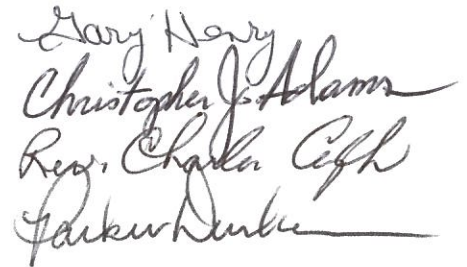 Gary Henry
Christopher J. Adams
Rev. Charles
Parker